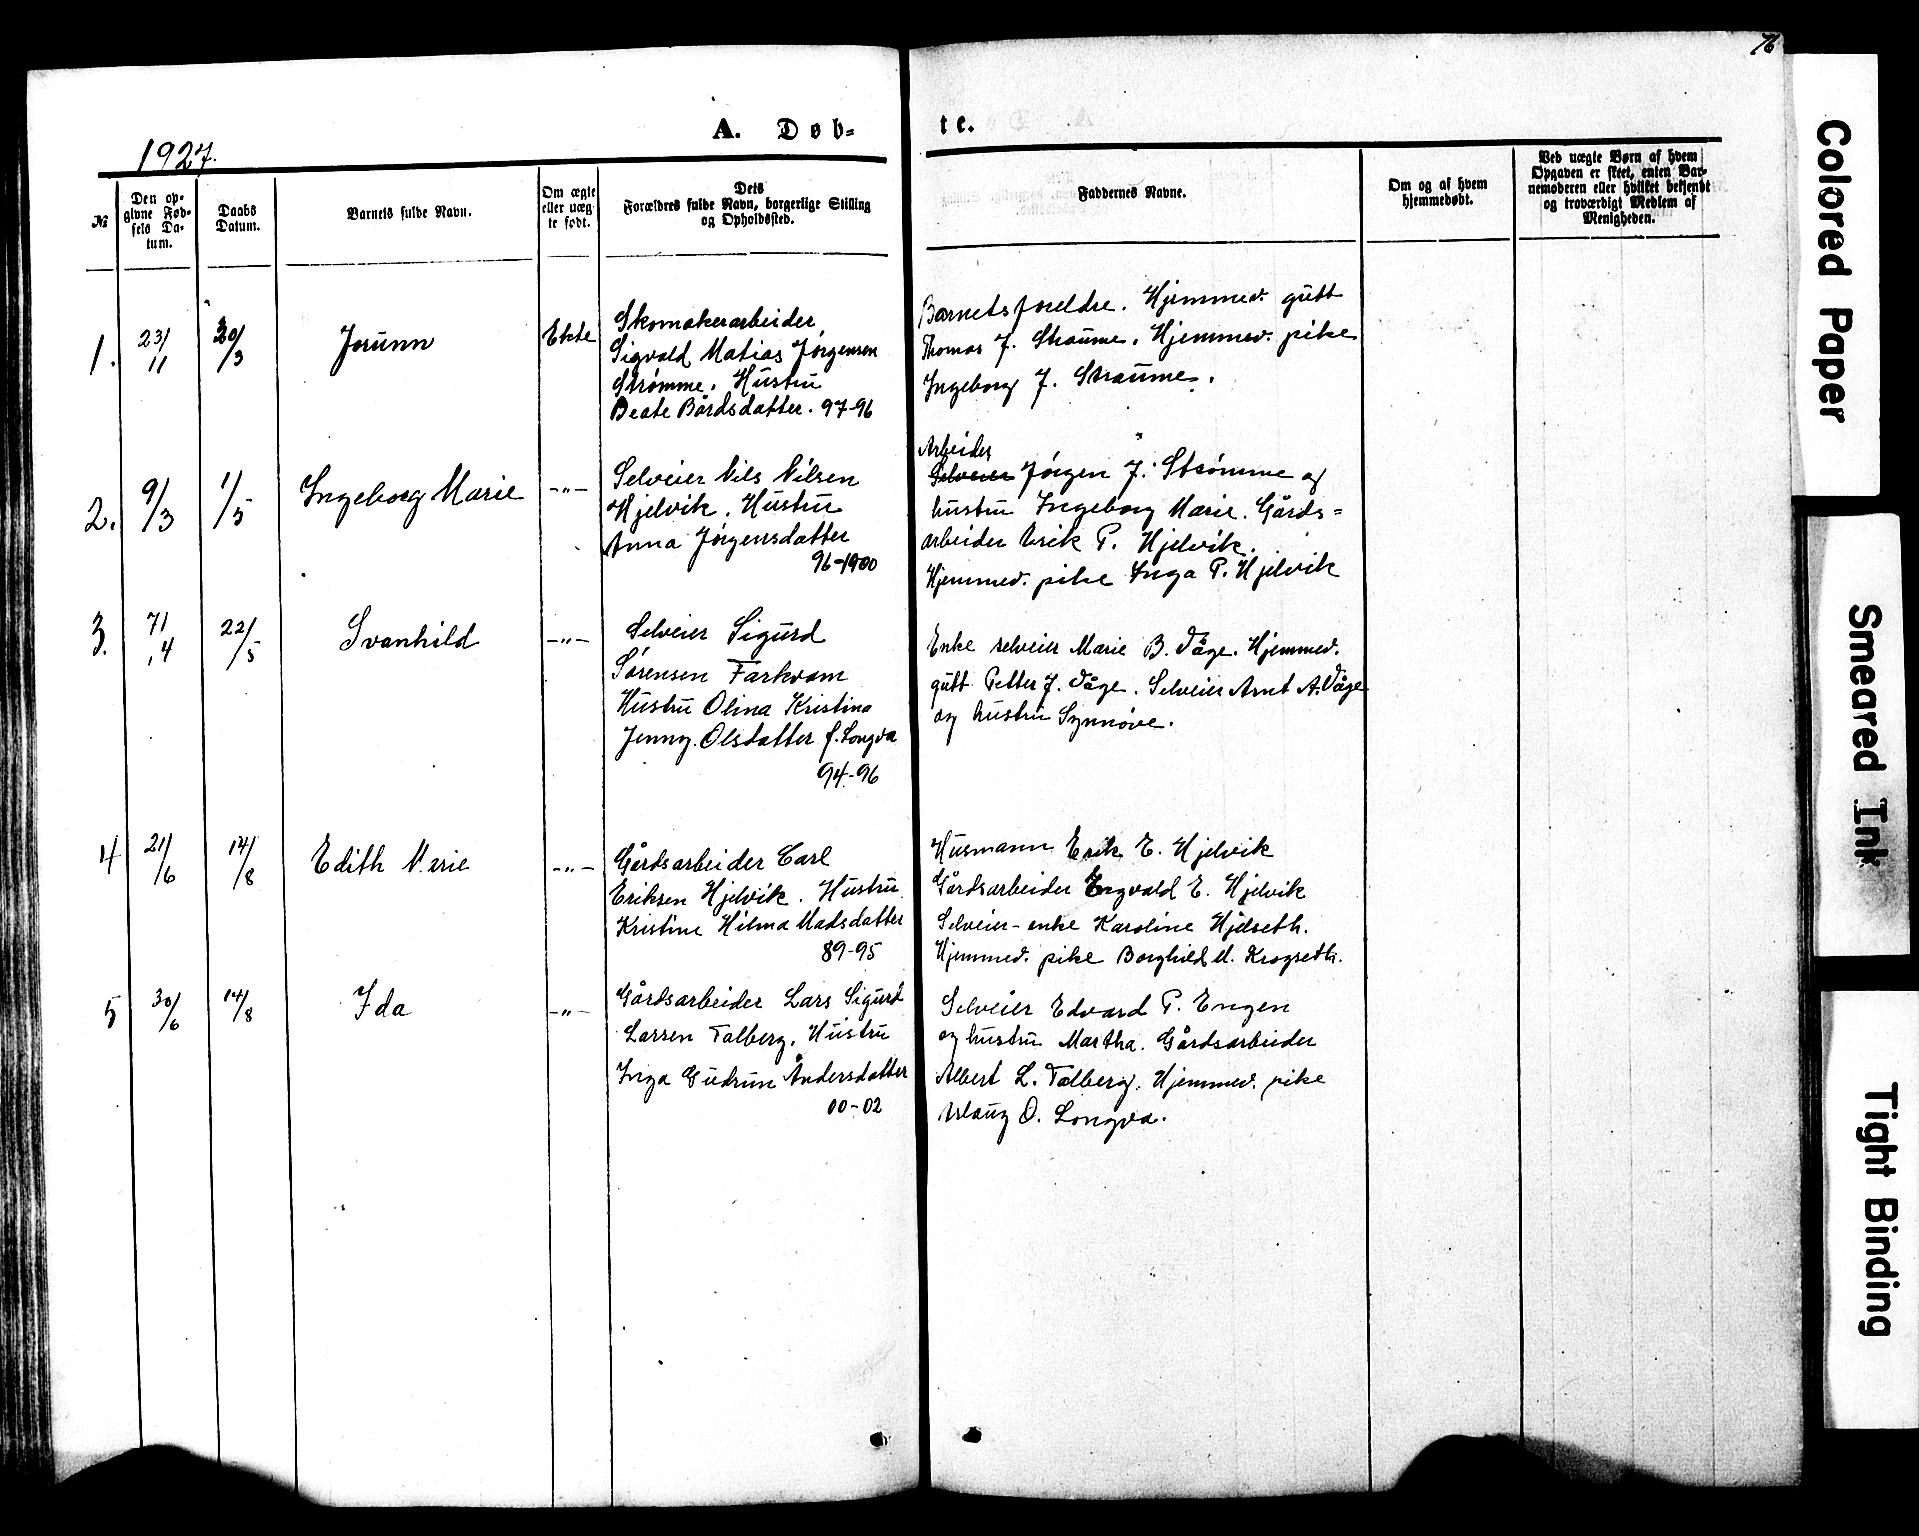 76
1927.
A. Døb-
te.
№
Den op-
givne Fød-
sels Da-
tum.
Daabs
Datum.
Barnets fulde Navn.
Om ægte
eller uæg-
te født.
Dets
Forældres fulde Navn, borgerlige Stilling
og Opholdssted.
Faddernes Navne.
Om og af hvem
hjemmedøbt.
Ved uægte Børn af hvem
Opgaven er skeet, enten Bar-
nemoderen eller hvilket bekjendt
og troværdigt Medlem af
Menigheden.
1.
23/11
20/3
Jorunn
Ekte
Skomakerarbeider,
Sigvald Matias Jørgensen
Strømme. Hustru
Beate Bårdsdatter. 97-96
Barnets foreldre. Hjemmev. gutt
Thomas J. Straume. Hjemmev. pike
Ingeborg J. Straume.
2.
9/3
1/5
Ingeborg Marie
-"-
Selveier Nils Nilsen
Hjelvik. Hustru
Anna Jørgensdatter
96-1900
Arbeider
Selveier Jørgen J. Strømme og
hustru Ingeborg Marie. Gårds=
arbeider Erik P. Hjelvik.
Hjemmev. pike Inga P. Hjelvik
3.
7/4
22/5
Svanhild
-"-
Selveier Sigurd
Sørensen Farkvam
Hustru Olina Kristina
Jenny. Olsdatter f. Longva
94-96
Enke selveier Marie B. Våge. Hjemmev.
gutt Petter J. Våge. Selveier Arnt A. Våge
og hustru Synnøve.
4
21/6
14/8
Edith Marie
-"-
Gårdsarbeider Carl
Eriksen Hjelvik. Hustru
Kristine Hilma Madsdatter
89-95
Husmann Erik E. Hjelvik
Gårdsarbeider Engvald E. Hjelvik
Selveier-enke Karoline Hjelseth.
Hjemmev. pike Borghild M. Krogseth.
5
30/6
14/8
Ida
-"-
Gårdsarbeider Lars Sigurd
Larsen Talberg. Hustru
Inga Gudrun Andersdatter
00-02
Selveier Edvard P. Engen
og hustru Martha. Gårdsarbeider
Albert L. Talberg. Hjemmev. pike
Aslaug O. Longva.
Colored Paper
Smeared Ink
Tight Binding